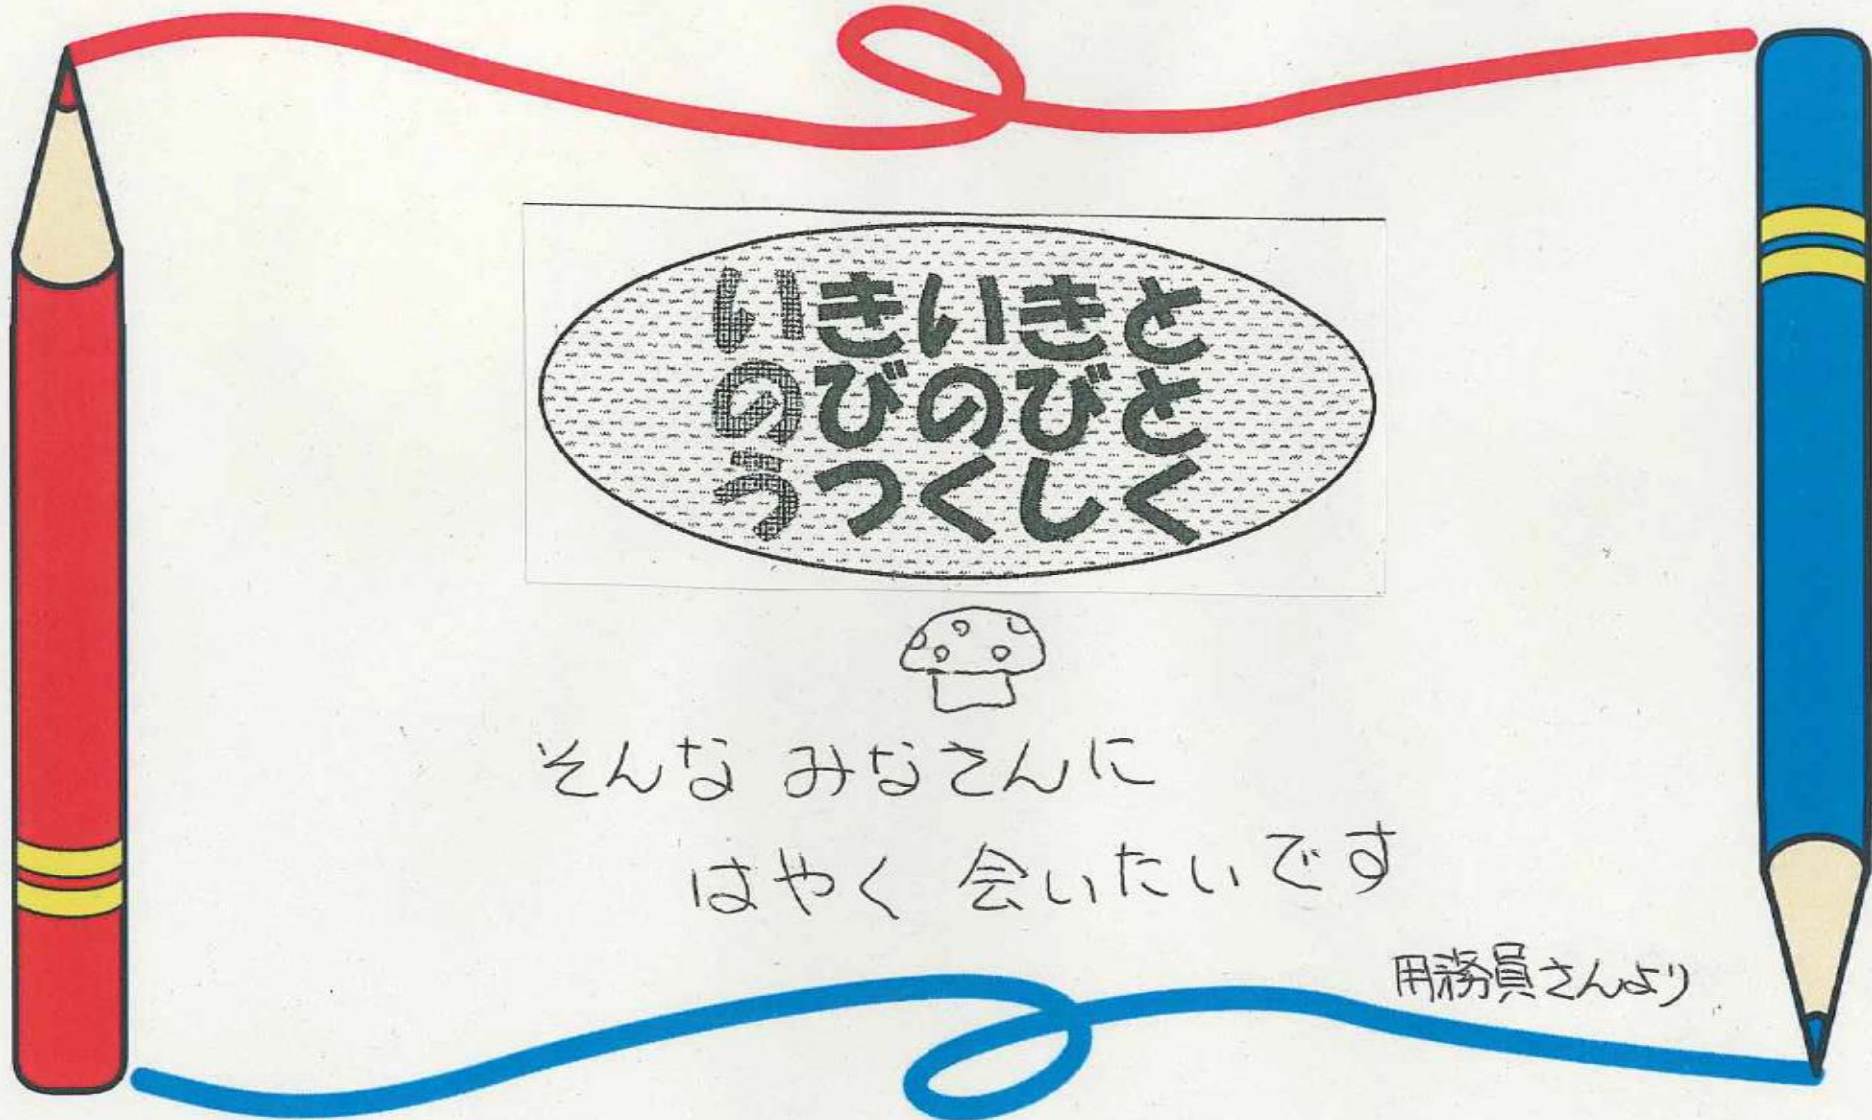 いきいきと
のびのびと
うつくしく
そんな みなさんに
はやく 会いたいです
用務員さんより